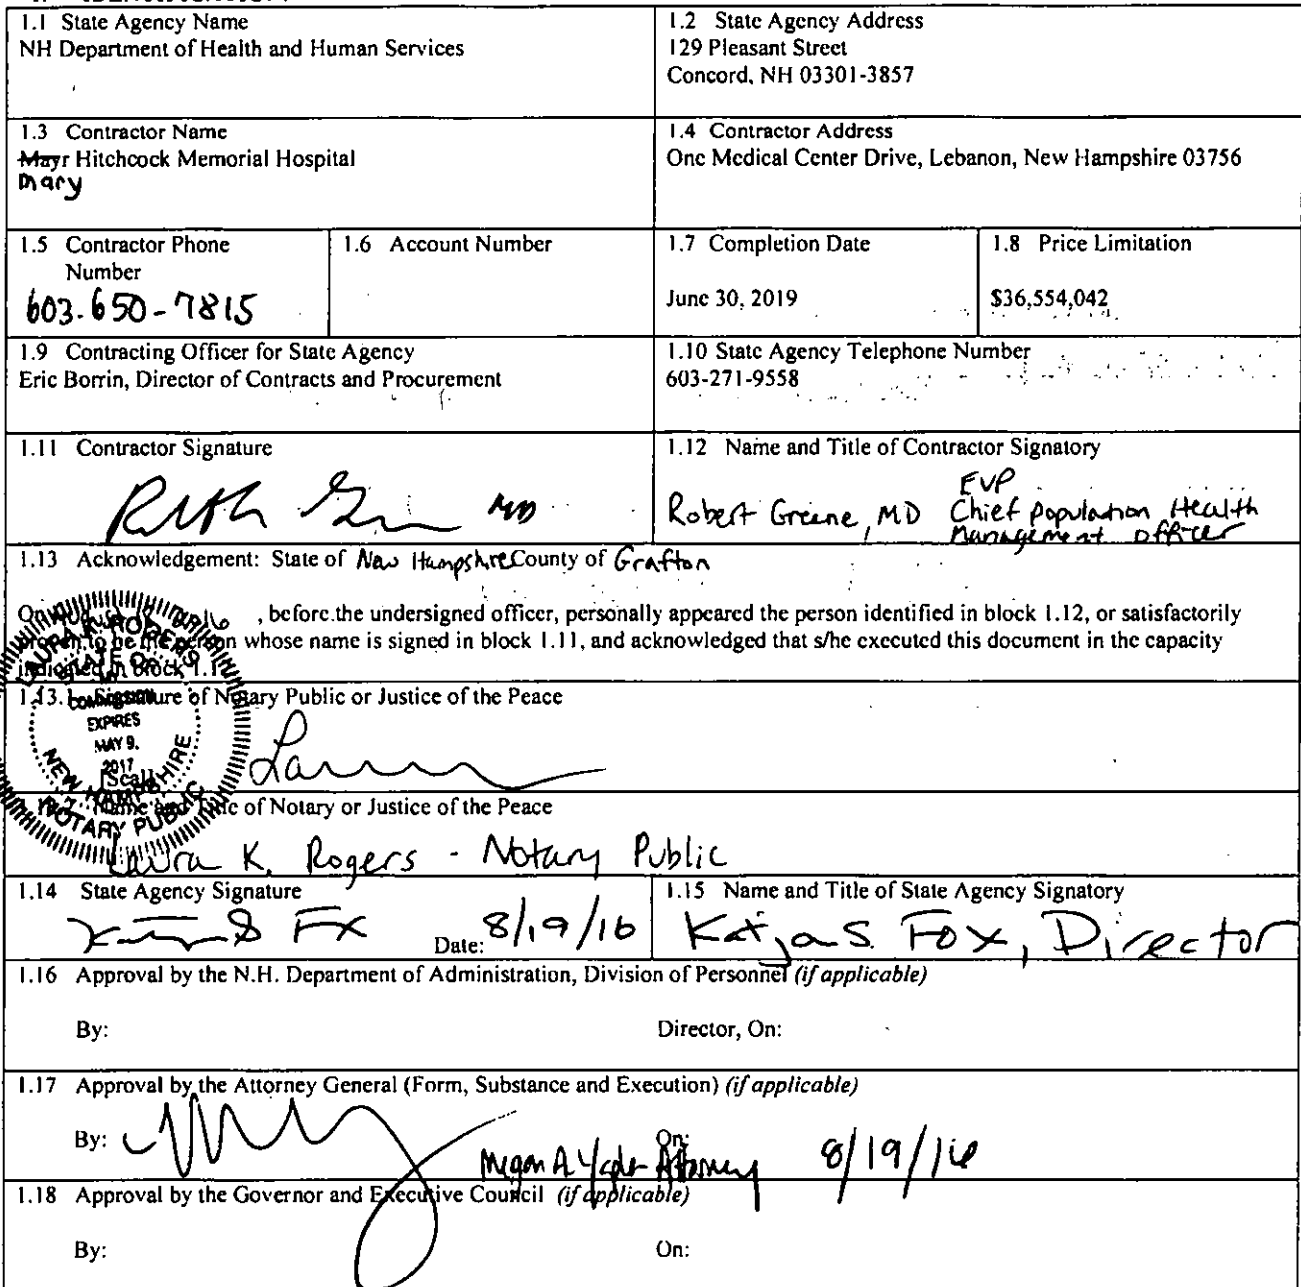 1.1 State Agency Name
NH Department of Health and Human Services
1.2 State Agency Address
129 Pleasant Street
Concord, NH 03301-3857
1.3 Contractor Name
Mayr Hitchcock Memorial Hospital
Mary
1.4 Contractor Address
One Medical Center Drive, Lebanon, New Hampshire 03756
1.5 Contractor Phone
Number
603-650-7815
1.6 Account Number
1.7 Completion Date
June 30, 2019
1.8 Price Limitation
$36,554,042
1.9 Contracting Officer for State Agency
Eric Borrin, Director of Contracts and Procurement
1.10 State Agency Telephone Number
603-271-9558
1.11 Contractor Signature
MD
1.12 Name and Title of Contractor Signatory
EVP
Robert Greene, MD Chief Population Health
Management Officer
1.13 Acknowledgement: State of New Hampshire County of Grafton
On , before the undersigned officer, personally appeared the person identified in block 1.12, or satisfactorily
proven to be the person whose name is signed in block 1.11, and acknowledged that s/he executed this document in the capacity
indicated in block 1.12
1.13.1 Signature of Notary Public or Justice of the Peace
LAURA K. ROGERS
STATE OF
COMMISSION
EXPIRES
MAY 9,
2017
NEW HAMPSHIRE
NOTARY PUBLIC
[Seal]
Name and Title of Notary or Justice of the Peace
Laura K. Rogers - Notary Public
1.14 State Agency Signature
Date: 8/19/16
1.15 Name and Title of State Agency Signatory
Katja S. Fox, Director
1.16 Approval by the N.H. Department of Administration, Division of Personnel (if applicable)
By: Director, On:
1.17 Approval by the Attorney General (Form, Substance and Execution) (if applicable)
By: On:
Megan A. Attorney 8/19/16
1.18 Approval by the Governor and Executive Council (if applicable)
By: On: